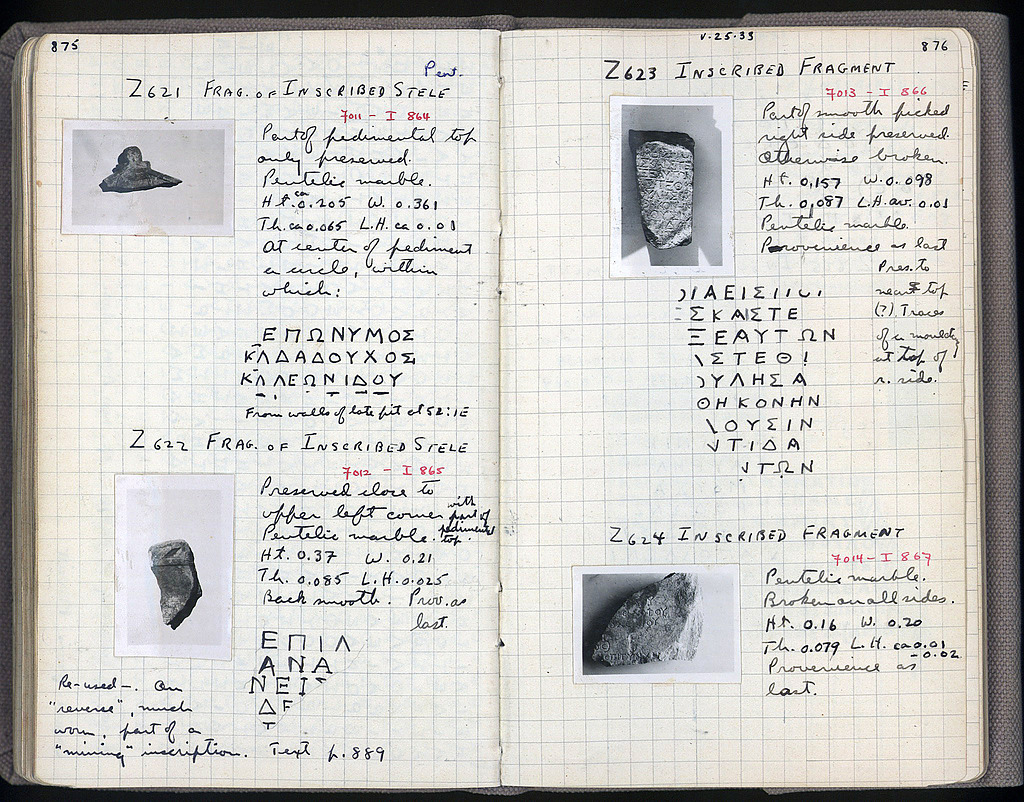 875
Pent.
Z621 FRAG. OF INSCRIBED STELE
7011 - I 864
Part of pedimental top
only preserved.
Pentelic marble.
Ht. ca 0.205 W. 0.361
Th. ca 0.065 L.H. ca 0.01
At center of pediment
a circle, within
which:
ΕΠΩΝΥΜΟΣ
ΚΛΔΑΔΟΥΧΟΣ
ΚΛΛΕΩΝΙΔΟΥ
From walls of late pit at 52:ΙΕ
Z622 FRAG. OF INSCRIBED STELE
7012 - I 865
Preserved close to
upper left corner with part of pedimental top.
Pentelic marble.
Ht. 0.37 W. 0.21
Th. 0.085 L.H. 0.025
Back smooth. Prov. as
last.
ΕΠΙΛ
ΑΝΑ
ΝΕΙ
ΔF
Τ
Re-used-. On
"reverse", much
worn, part of a
"mining" inscription. Text p. 889
V-25-33
876
Z623 INSCRIBED FRAGMENT
7013 - I 866
Part of smooth picked
right side preserved.
Otherwise broken.
Ht. 0,157 W. 0.098
Th. 0,087 L.H. av. 0.01
Pentelic marble.
Provenience as last
Pres. to
near top
(?) Traces
of a moulding
at top of
r. side.
ΙΑΕΙΣΙ
ΣΚΑΣΤΕ
ΞΕΑΥΤΩΝ
\ΣΤΕΘ!
ΟΥΛΗΣΑ
ΘΗΚΟΝΗΝ
\ΟΥΣΙΝ
ΝΤΙΔΑ
ΝΤΩΝ
Z624 INSCRIBED FRAGMENT
7014 - I 867
Pentelic marble.
Broken on all sides.
Ht. 0.16 W. 0.20
Th. 0.079 L.H. ca 0.01
-0.02.
Provenience as
last.